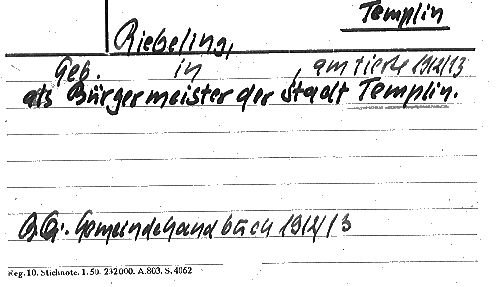 Templin
Riebeling,
Geb. in , amtierte 1912/13
als Bürgermeister der Stadt Templin.
Gemeindehandbuch 1912/13
Reg. 10. Stichnote. 1. 50. 232000. A. 803. S. 4062